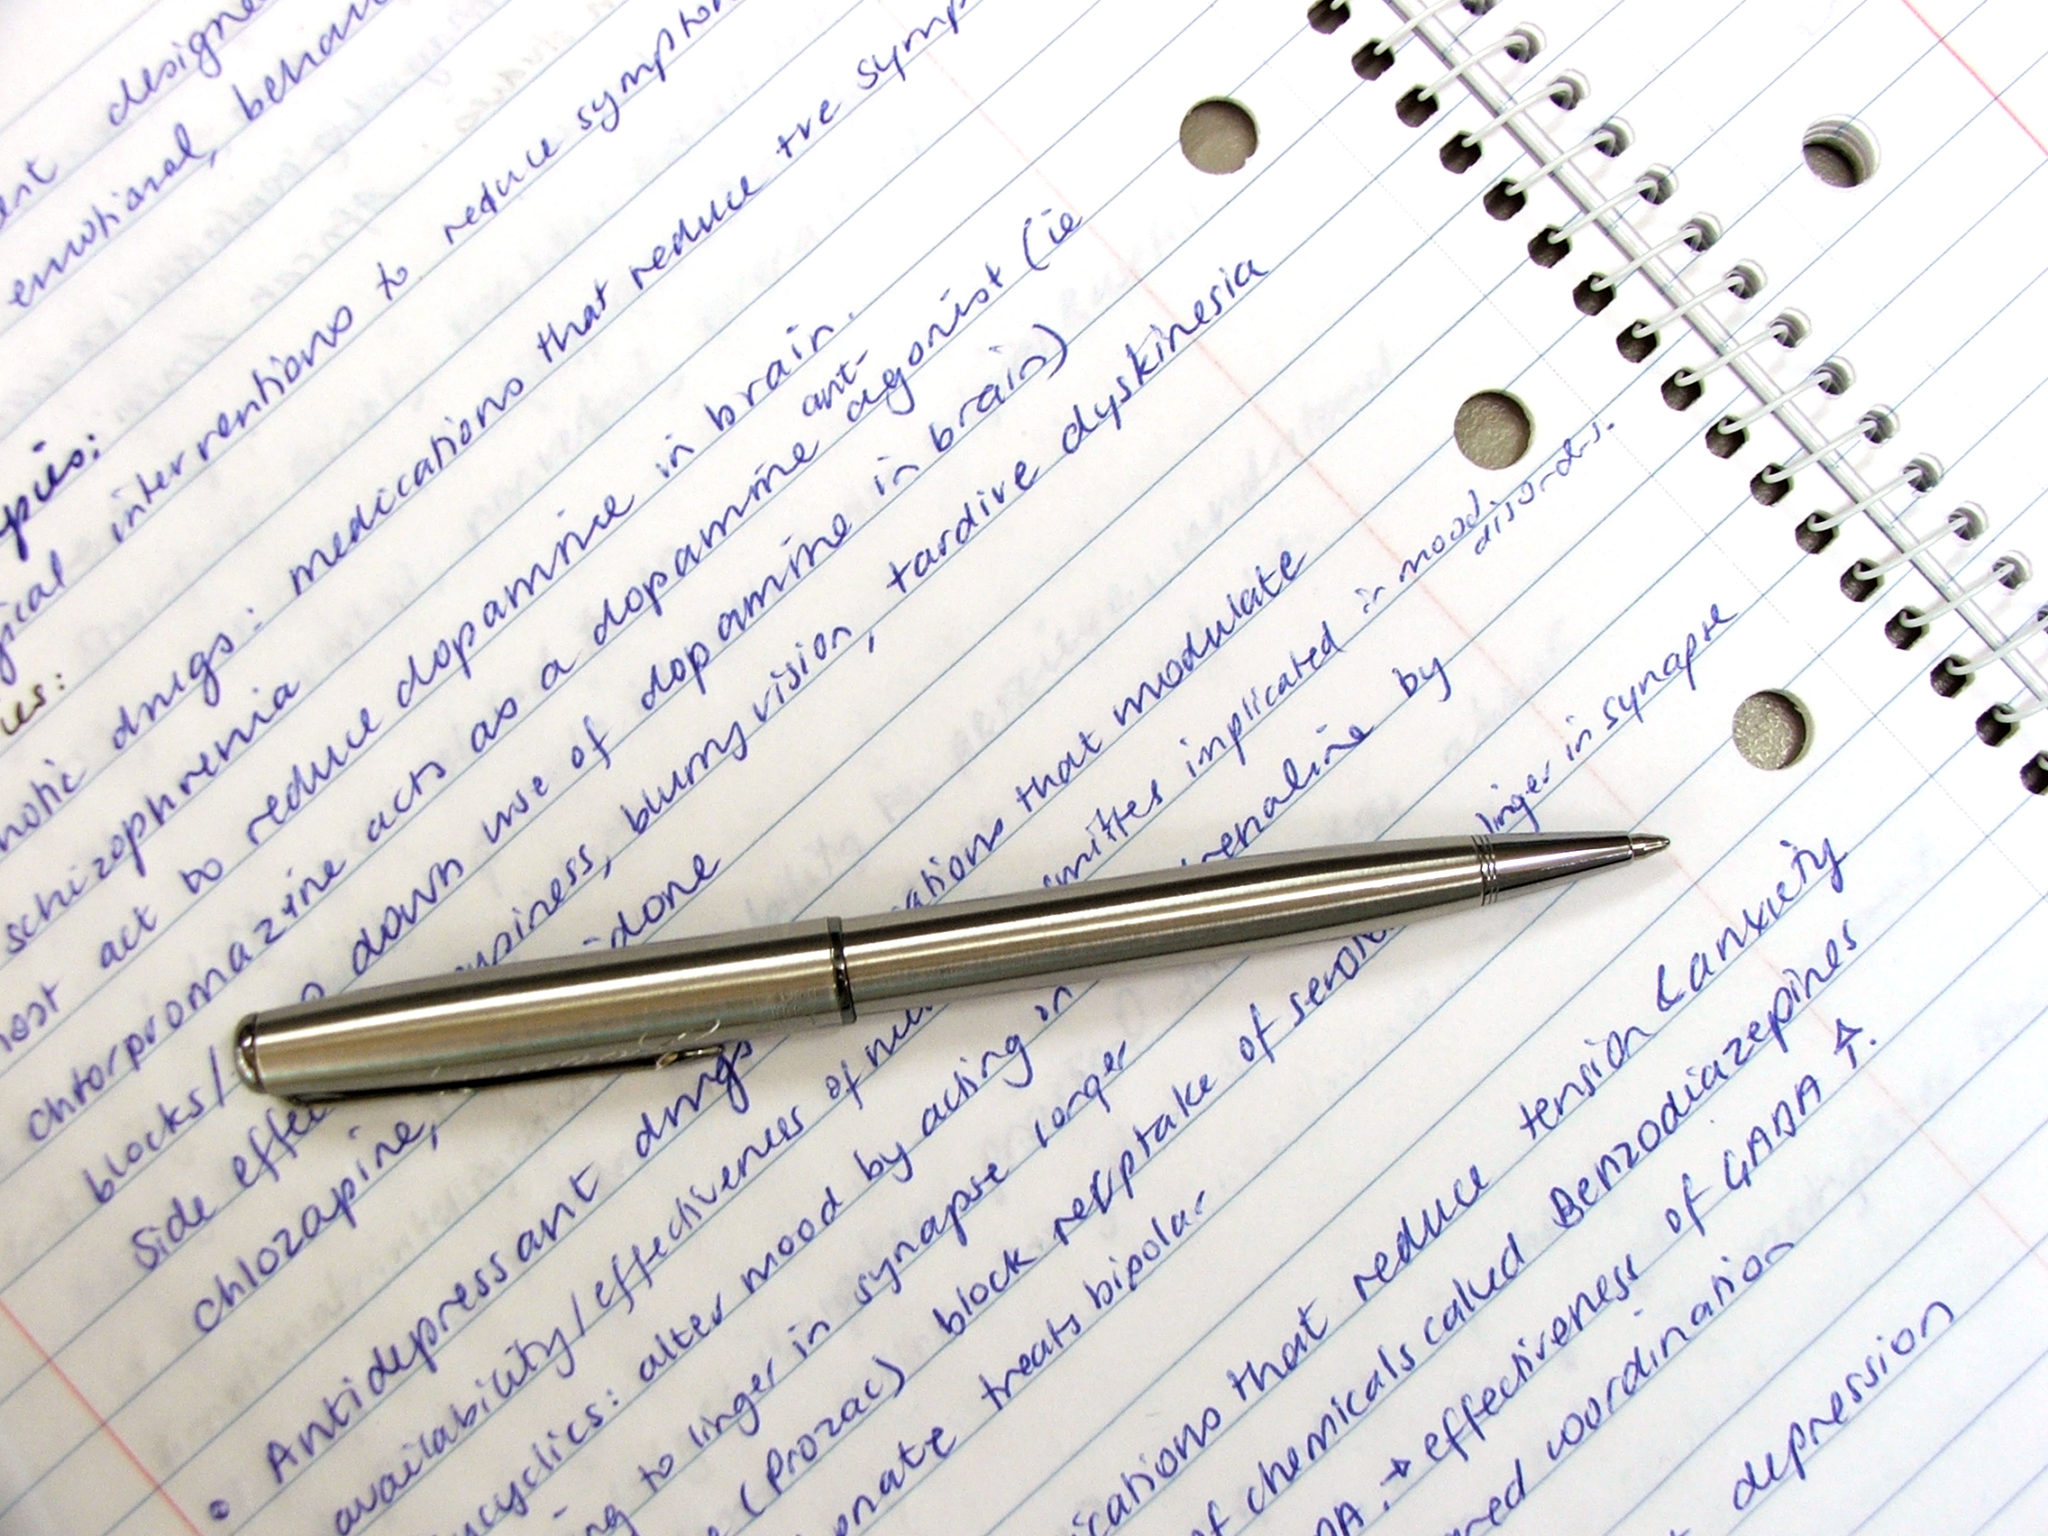 designe
emotional, behav
pies:
gical interventions to reduce symptom
ies:
hotic drugs: medications that reduce tve symp
schizophrenia
act to reduce dopamine in brain.
ant-
chlorpromazine acts as a dopamine agonist (ie
blocks/ down use of dopamine in brain)
side effe piness, blurry vision, tardive dyskinesia
chlozapine, idone
• Antidepressant drugs cations that modulate
availability/effectiveness of mitters inplicated in mood
disorders.
cyclics: alter mood by acting in renaline by
ng to linger in synapse longer
(Prozac) block reuptake of seroto linger in synapse
onate treats bipolar
ications that reduce tension & anxiety
of chemicals called Benzodiazepines
→ effectiveness of GABA ↑.
coordination
depression